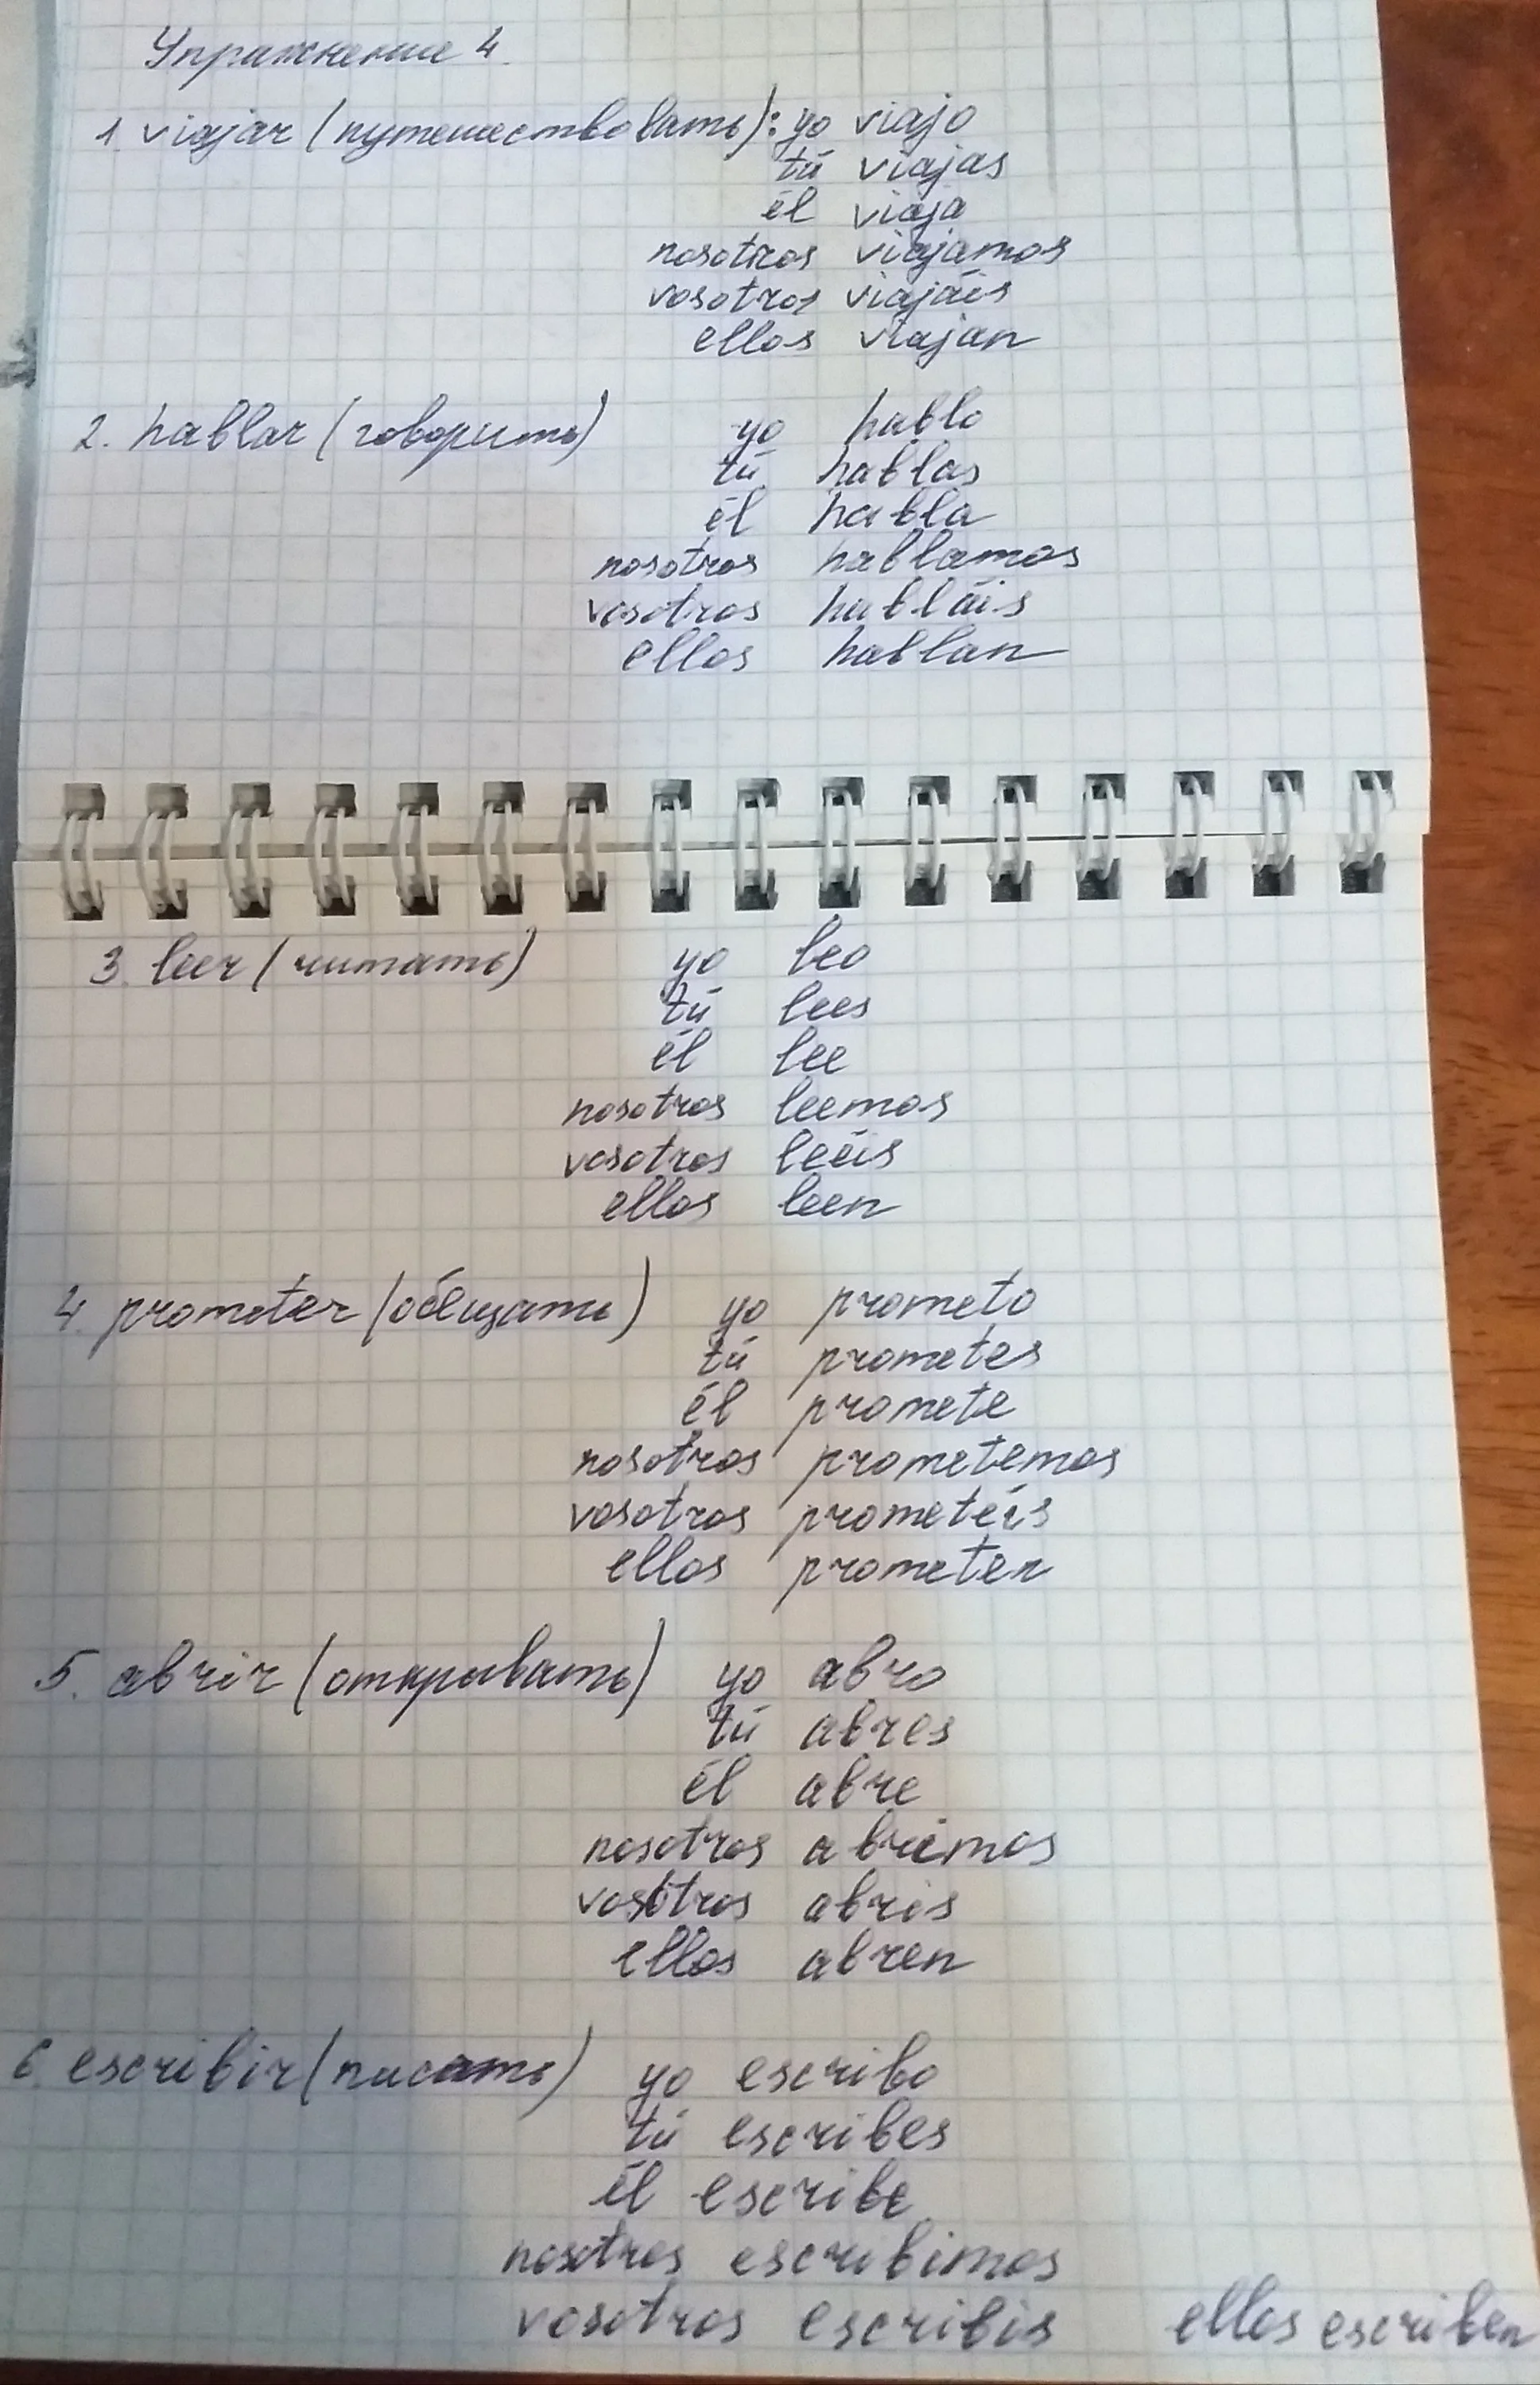 Упражнение 4.
1. viajar (путешествовать): yo viajo
tú viajas
él viaja
nosotros viajamos
vosotros viajáis
ellos viajan
2. hablar (говорить) yo hablo
tú hablas
él habla
nosotros hablamos
vosotros habláis
ellos hablan
3. leer (читать) yo leo
tú lees
él lee
nosotros leemos
vosotros leéis
ellos leen
4. prometer (обещать) yo prometo
tú prometes
él promete
nosotros prometemos
vosotros prometéis
ellos prometen
5. abrir (открывать) yo abro
tú abres
él abre
nosotros abrimos
vosotros abris
ellos abren
6. escribir (писать) yo escribo
tú escribes
él escribe
nosotros escribimos
vosotros escribis ellos escriben